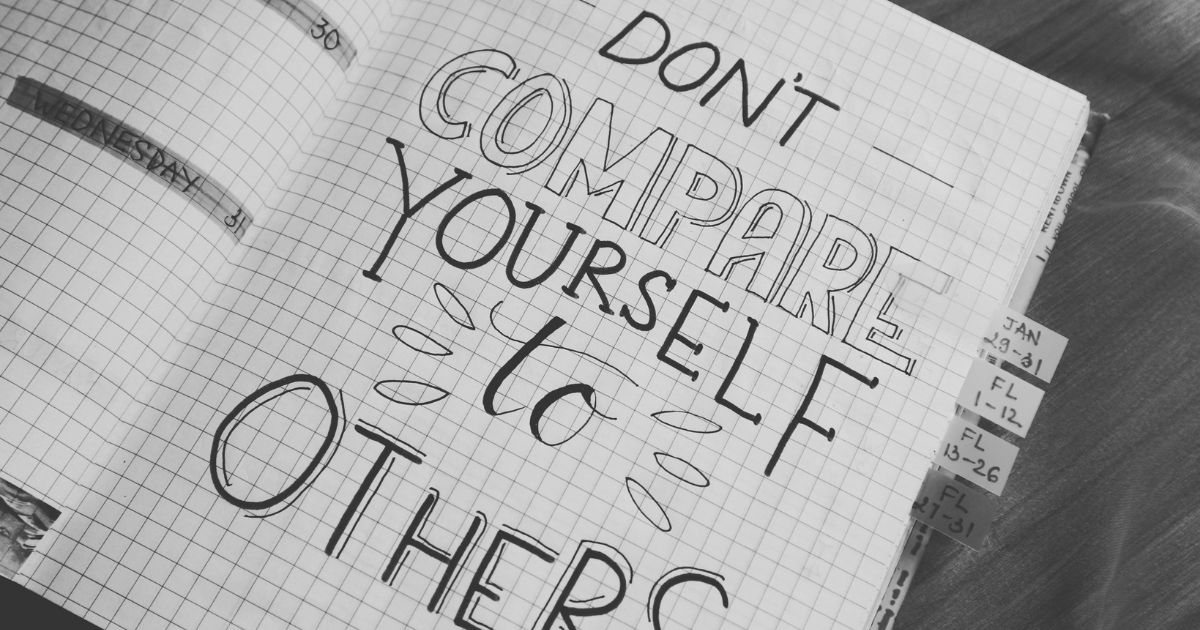 30
WEDNESDAY
31
DON'T
COMPARE
YOURSELF
to
OTHERS
JAN
29-31
FL
1-12
FL
13-26
FL
27-31